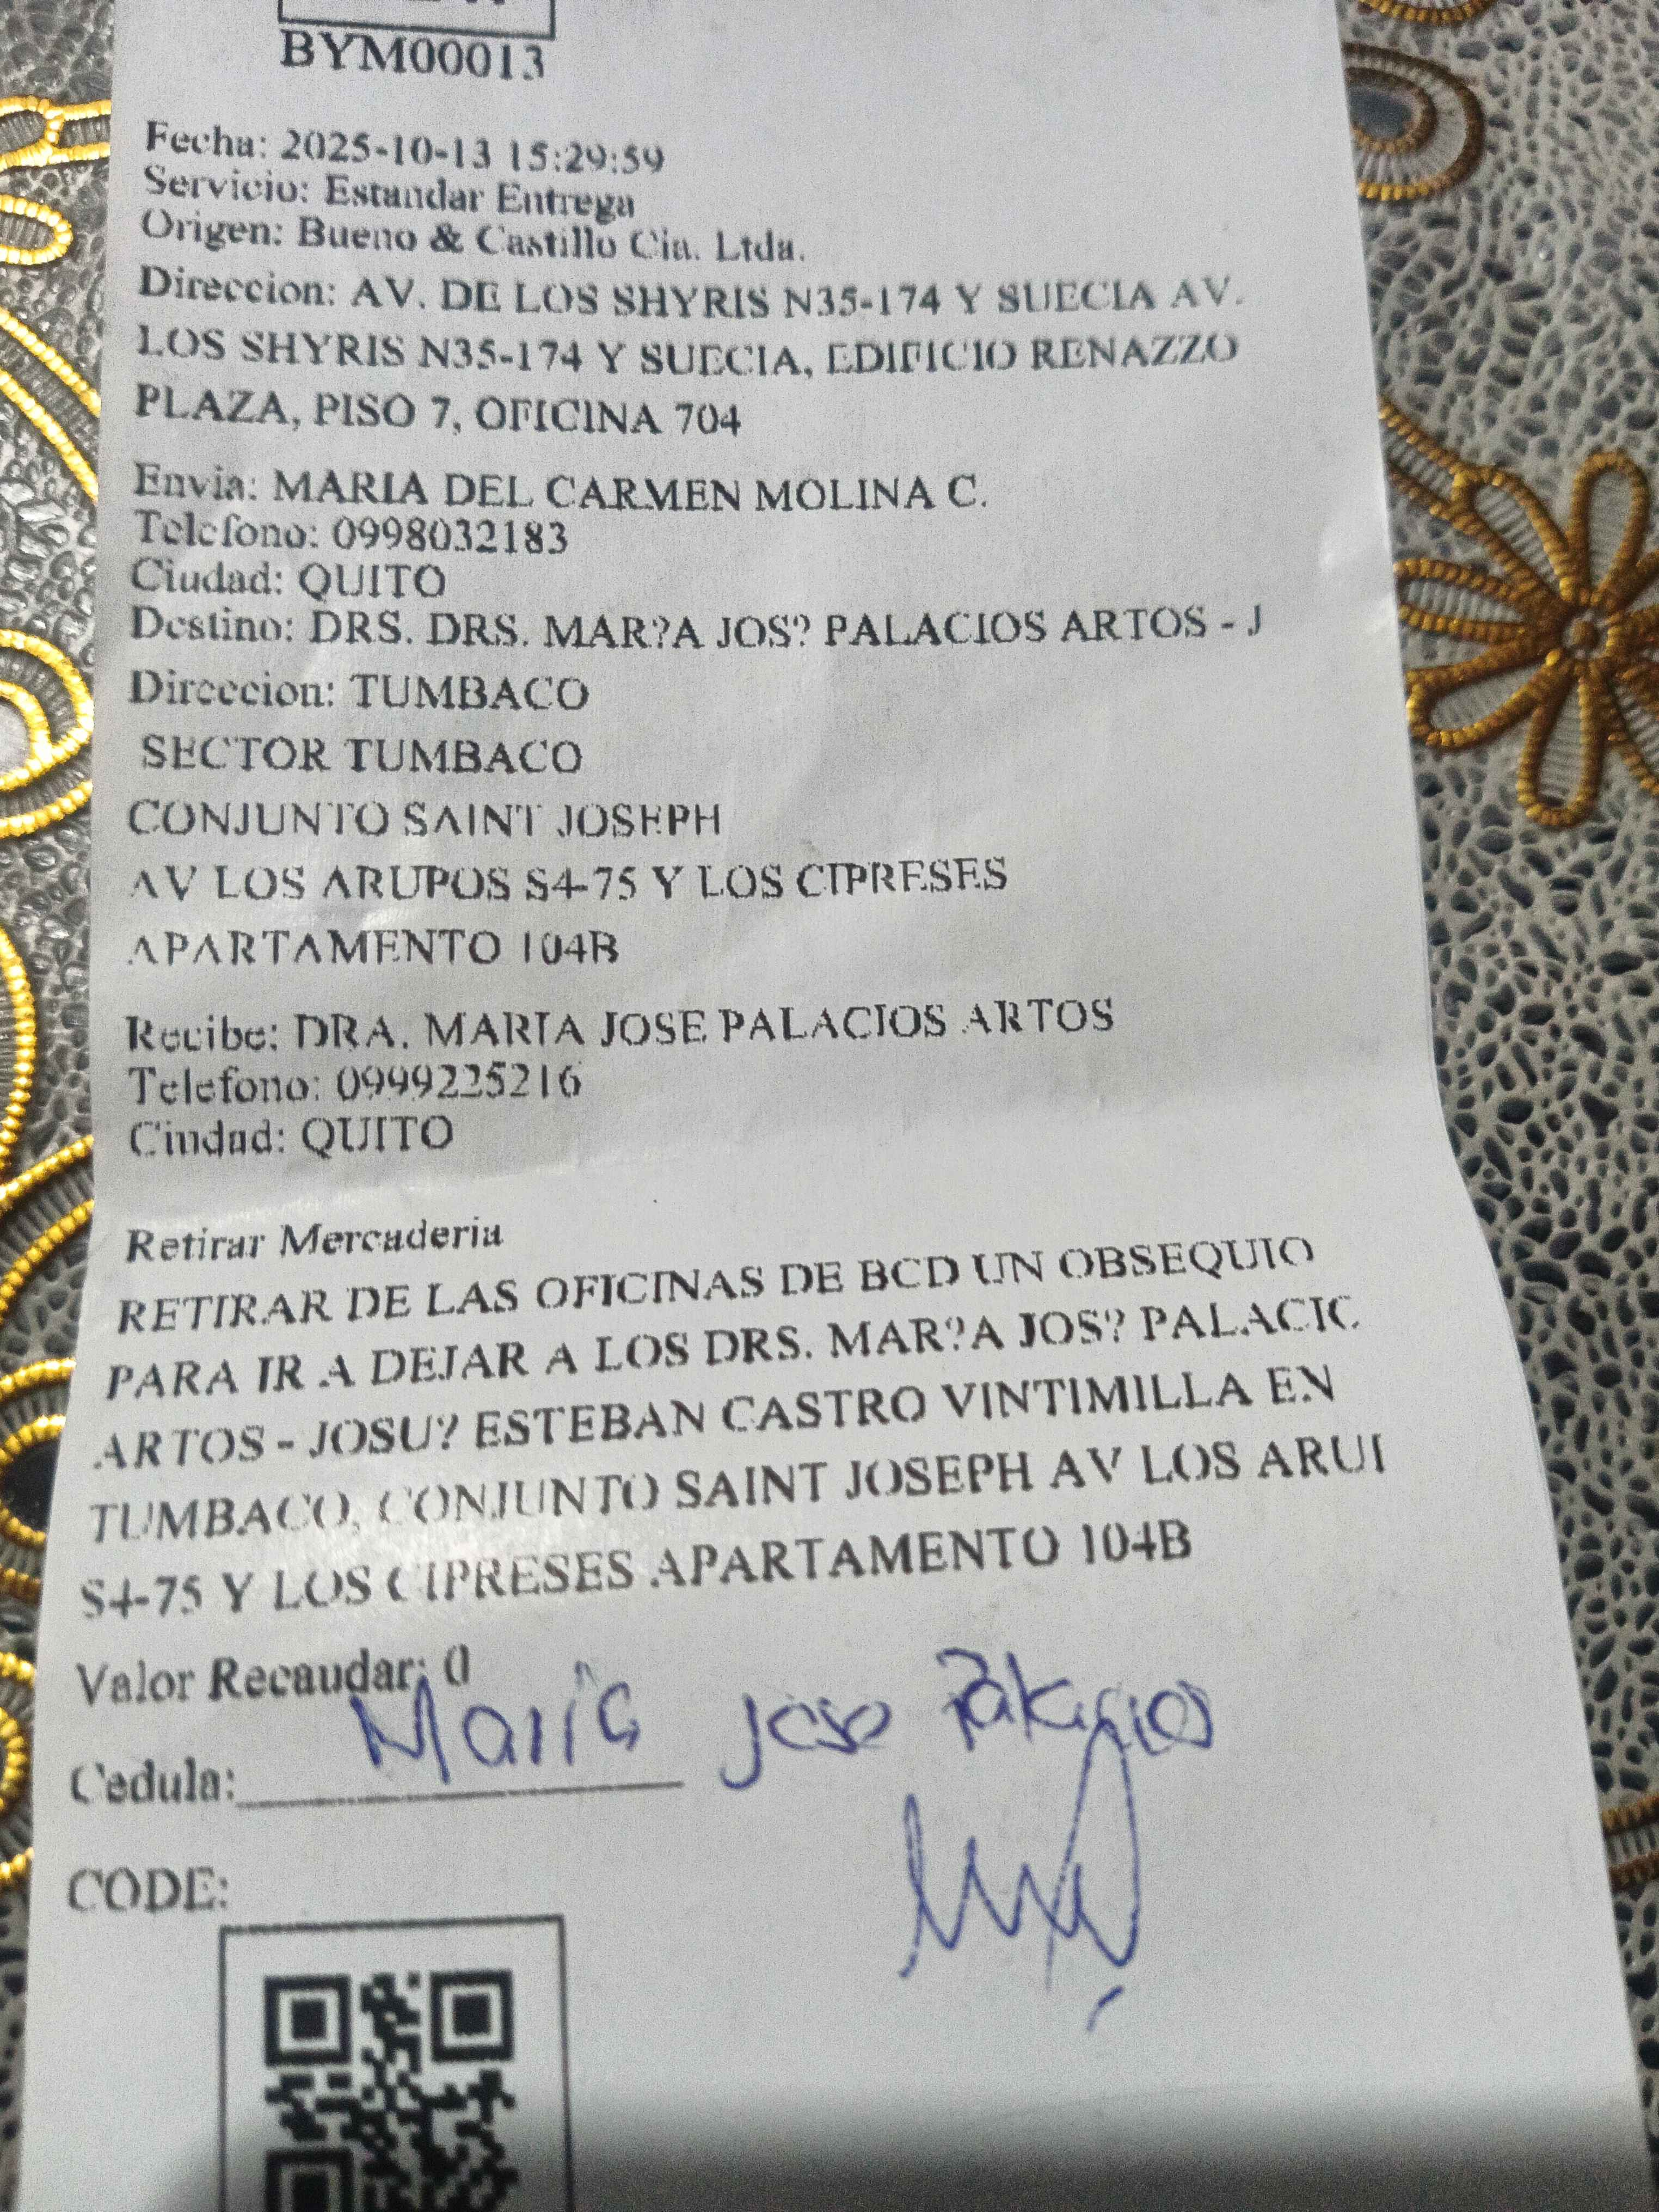 BYM00013
Fecha: 2025-10-13 15:29:59
Servicio: Estandar Entrega
Origen: Bueno & Castillo Cia. Ltda.
Direccion: AV. DE LOS SHYRIS N35-174 Y SUECIA AV.
LOS SHYRIS N35-174 Y SUECIA, EDIFICIO RENAZZO
PLAZA, PISO 7, OFICINA 704
Envia: MARIA DEL CARMEN MOLINA C.
Telefono: 0998032183
Ciudad: QUITO
Destino: DRS. DRS. MAR?A JOS? PALACIOS ARTOS - J
Direccion: TUMBACO
SECTOR TUMBACO
CONJUNTO SAINT JOSEPH
AV LOS ARUPOS S4-75 Y LOS CIPRESES
APARTAMENTO 104B
Recibe: DRA. MARIA JOSE PALACIOS ARTOS
Telefono: 0999225216
Ciudad: QUITO
Retirar Mercaderia
RETIRAR DE LAS OFICINAS DE BCD UN OBSEQUIO
PARA IR A DEJAR A LOS DRS. MAR?A JOS? PALACIC
ARTOS - JOSU? ESTEBAN CASTRO VINTIMILLA EN
TUMBACO, CONJUNTO SAINT JOSEPH AV LOS ARUI
S4-75 Y LOS CIPRESES APARTAMENTO 104B
Valor Recaudar: 0
Maria Jose Palacios
Cedula:
CODE: